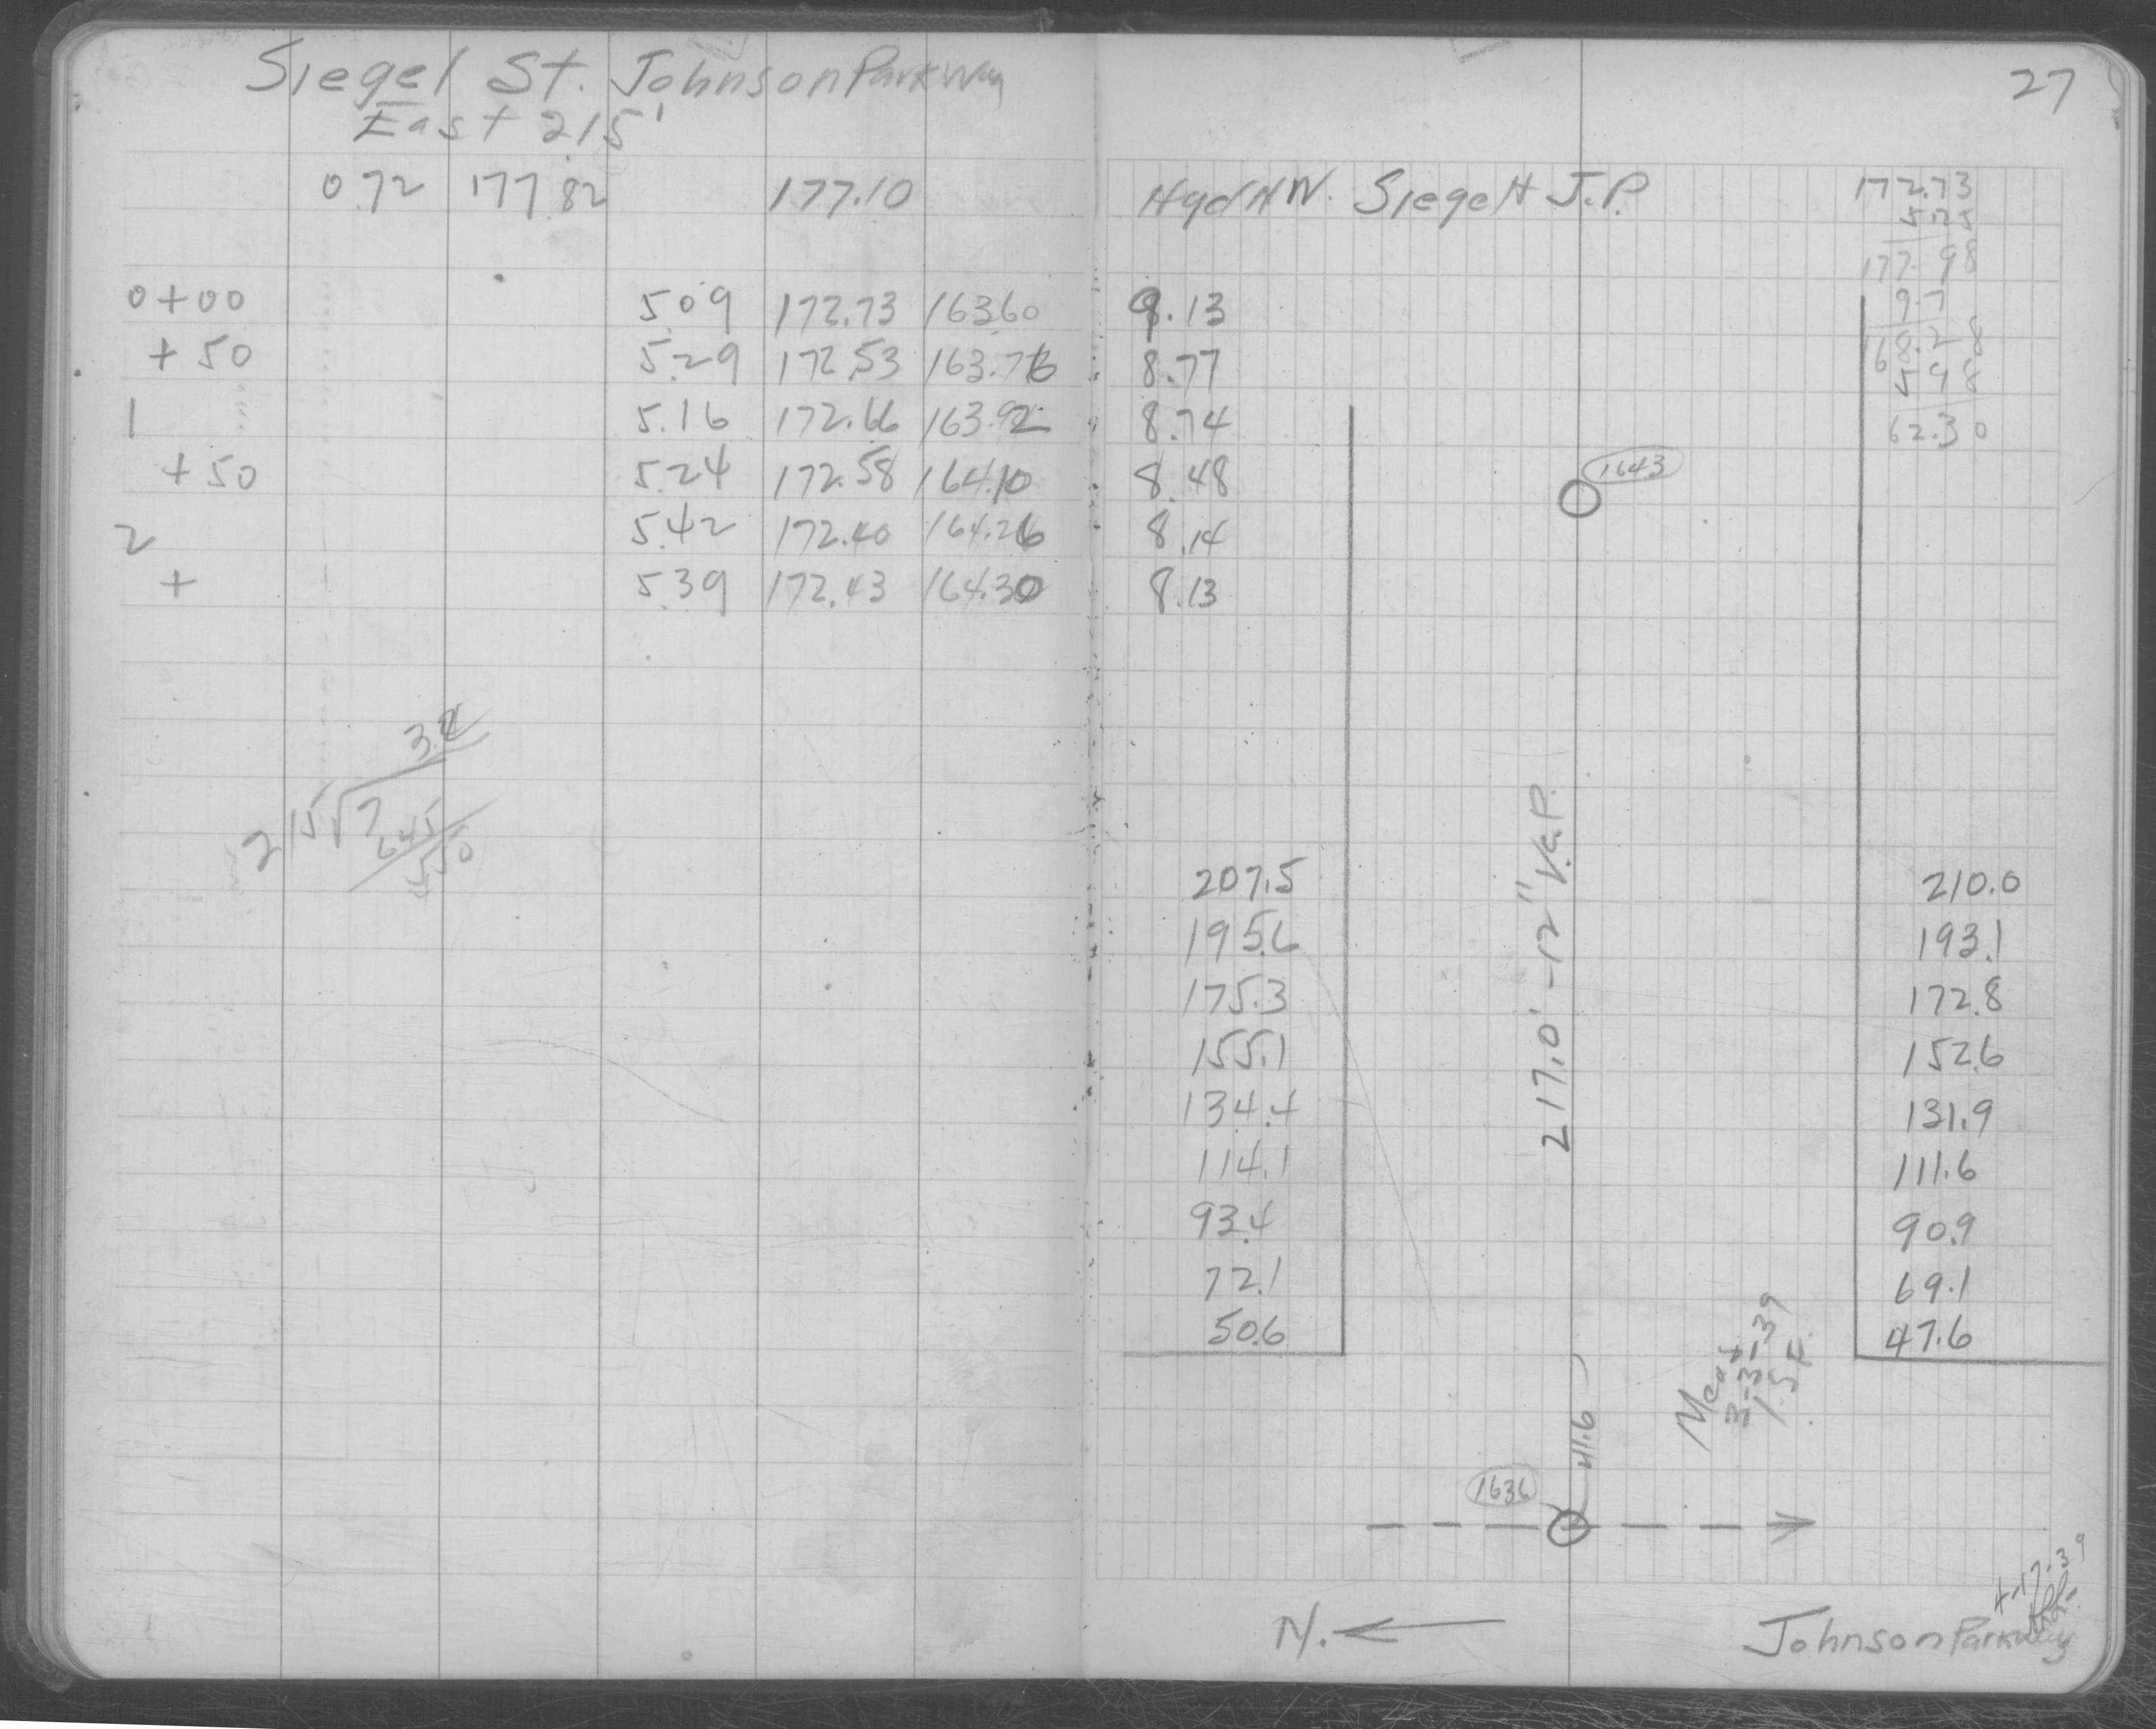 Siegel St. Johnson Parkway
East 215'
0.72 177.82 177.10
0+00 5.09 172.73 163.60
+50 5.29 172.53 163.76
1 5.16 172.66 163.92
+50 5.24 172.58 164.10
2 5.42 172.40 164.26
+ 5.39 172.43 164.30
215 7
645
550
27
Hyd N.W. Siegel + J.P.
172.73
177.98
9.7
168.28
62.30
9.13
8.77
8.74
8.48
8.14
8.13
1643
217.0' - 12" V.C.P.
207.5
195.6
175.3
155.1
134.4
114.1
93.4
72.1
50.6
210.0
193.1
172.8
152.6
131.9
111.6
90.9
69.1
47.6
3-3-39
41.6
1636
N.
4-17-39
Johnson Parkway